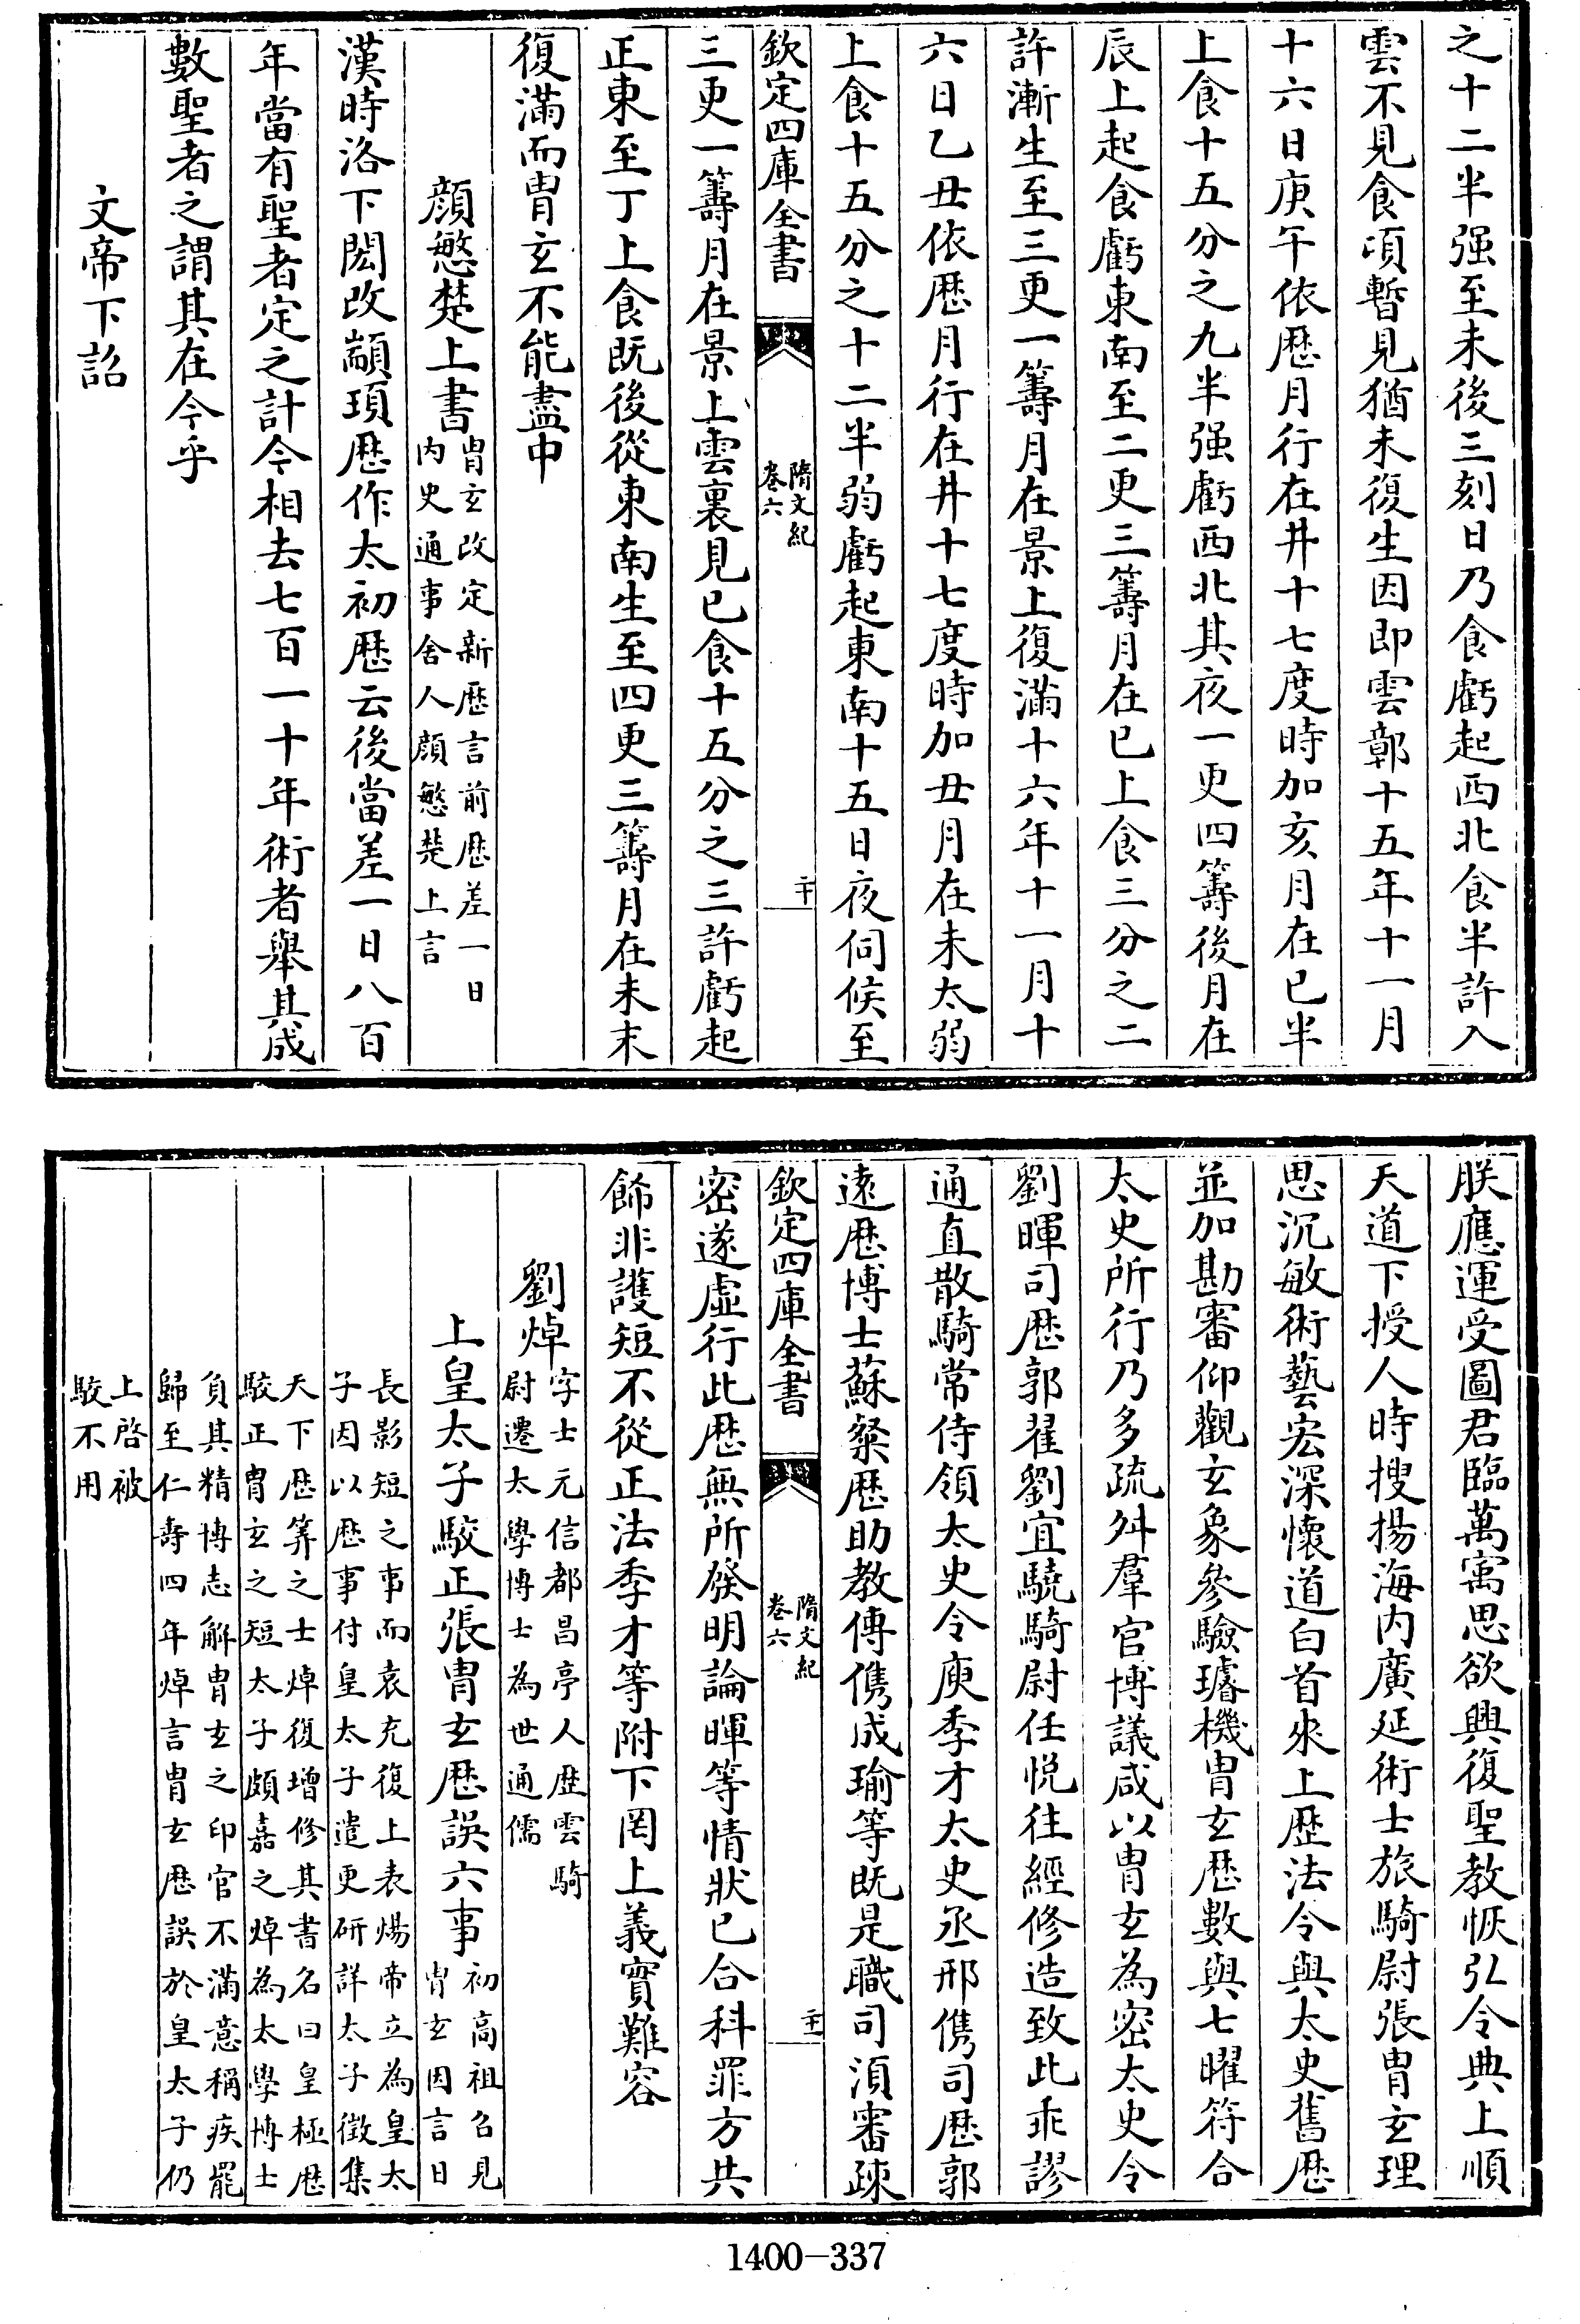 之十二半强至未後三刻日乃食虧起西北食半許入
雲不見食頃暫見猶未復生因即雲鄣十五年十一月
十六日庚午依歴月行在井十七度時加亥月在巳半
上食十五分之九半强虧西北其夜一更四籌後月在
辰上起食虧東南至二更三籌月在巳上食三分之二
許漸生至三更一籌月在景上復滿十六年十一月十
六日乙丑依歴月行在井十七度時加丑月在未太弱
上食十五分之十二半弱虧起東南十五日夜伺候至
欽定四庫全書
隋文紀
卷六
二十
三更一籌月在景上雲裏見已食十五分之三許虧起
正東至丁上食既後從東南生至四更三籌月在未末
復滿而胄玄不能盡中
顔慜楚上書
胄玄改定新歴言前歴差一日
内史通事舍人顔慜楚上言
漢時洛下閎改顓頊歴作太初歴云後當差一日八百
年當有聖者定之計今相去七百一十年術者舉其成
數聖者之謂其在今乎
文帝下詔
朕應運受圖君臨萬㝢思欲興復聖教恢弘令典上順
天道下授人時搜揚海内廣延術士旅騎尉張胄玄理
思沉敏術藝宏深懷道白首來上歴法令與太史舊歴
並加勘審仰觀玄象參驗璿機胄玄歴數與七曜符合
太史所行乃多疏舛羣官博議咸以胄玄為密太史令
劉暉司歴郭翟劉宜驍騎尉任悦往經修造致此乖謬
通直散騎常侍領太史令庾季才太史丞邢儁司歴郭
遠歴博士蘇粲歴助教傅儁成瑜等既是職司須審疎
欽定四庫全書
隋文紀
卷六
二十一
密遂虛行此歴無所發明論暉等情狀已合科罪方共
飾非護短不從正法季才等附下罔上義實難容
劉焯
字士元信都昌亭人歴雲騎
尉遷太學博士為世通儒
上皇太子駮正張胄玄歴誤六事
初高祖召見
胄玄因言日
長影短之事而袁充復上表煬帝立為皇太
子因以歴事付皇太子遣更研詳太子徵集
天下歴筭之士焯復增修其書名曰皇極歴
駮正胄玄之短太子頗嘉之焯為太學博士
負其精博志解胄玄之印官不滿意稱疾罷
歸至仁壽四年焯言胄玄歴誤於皇太子仍
上啓被
駮不用
1400-337